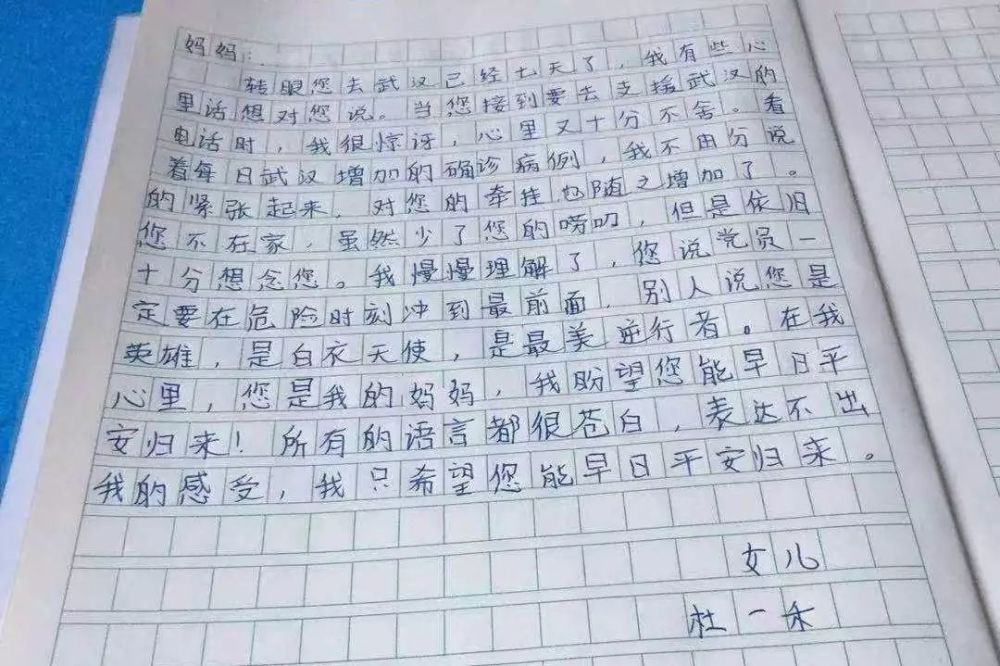 妈妈：
转眼您去武汉已经七天了，我有些心
里话想对您说。当您接到要去支援武汉的
电话时，我很惊讶，心里又十分不舍。看
着每日武汉增加的确诊病例，我不由分说
的紧张起来，对您的牵挂也随之增加了。
您不在家，虽然少了您的唠叨，但是依旧
十分想念您。我慢慢理解了，您说党员一
定要在危险时刻冲到最前面，别人说您是
英雄，是白衣天使，是最美逆行者。在我
心里，您是我的妈妈，我盼望您能早日平
安归来！所有的语言都很苍白，表达不出
我的感受，我只希望您能早日平安归来。
女儿
杜一禾